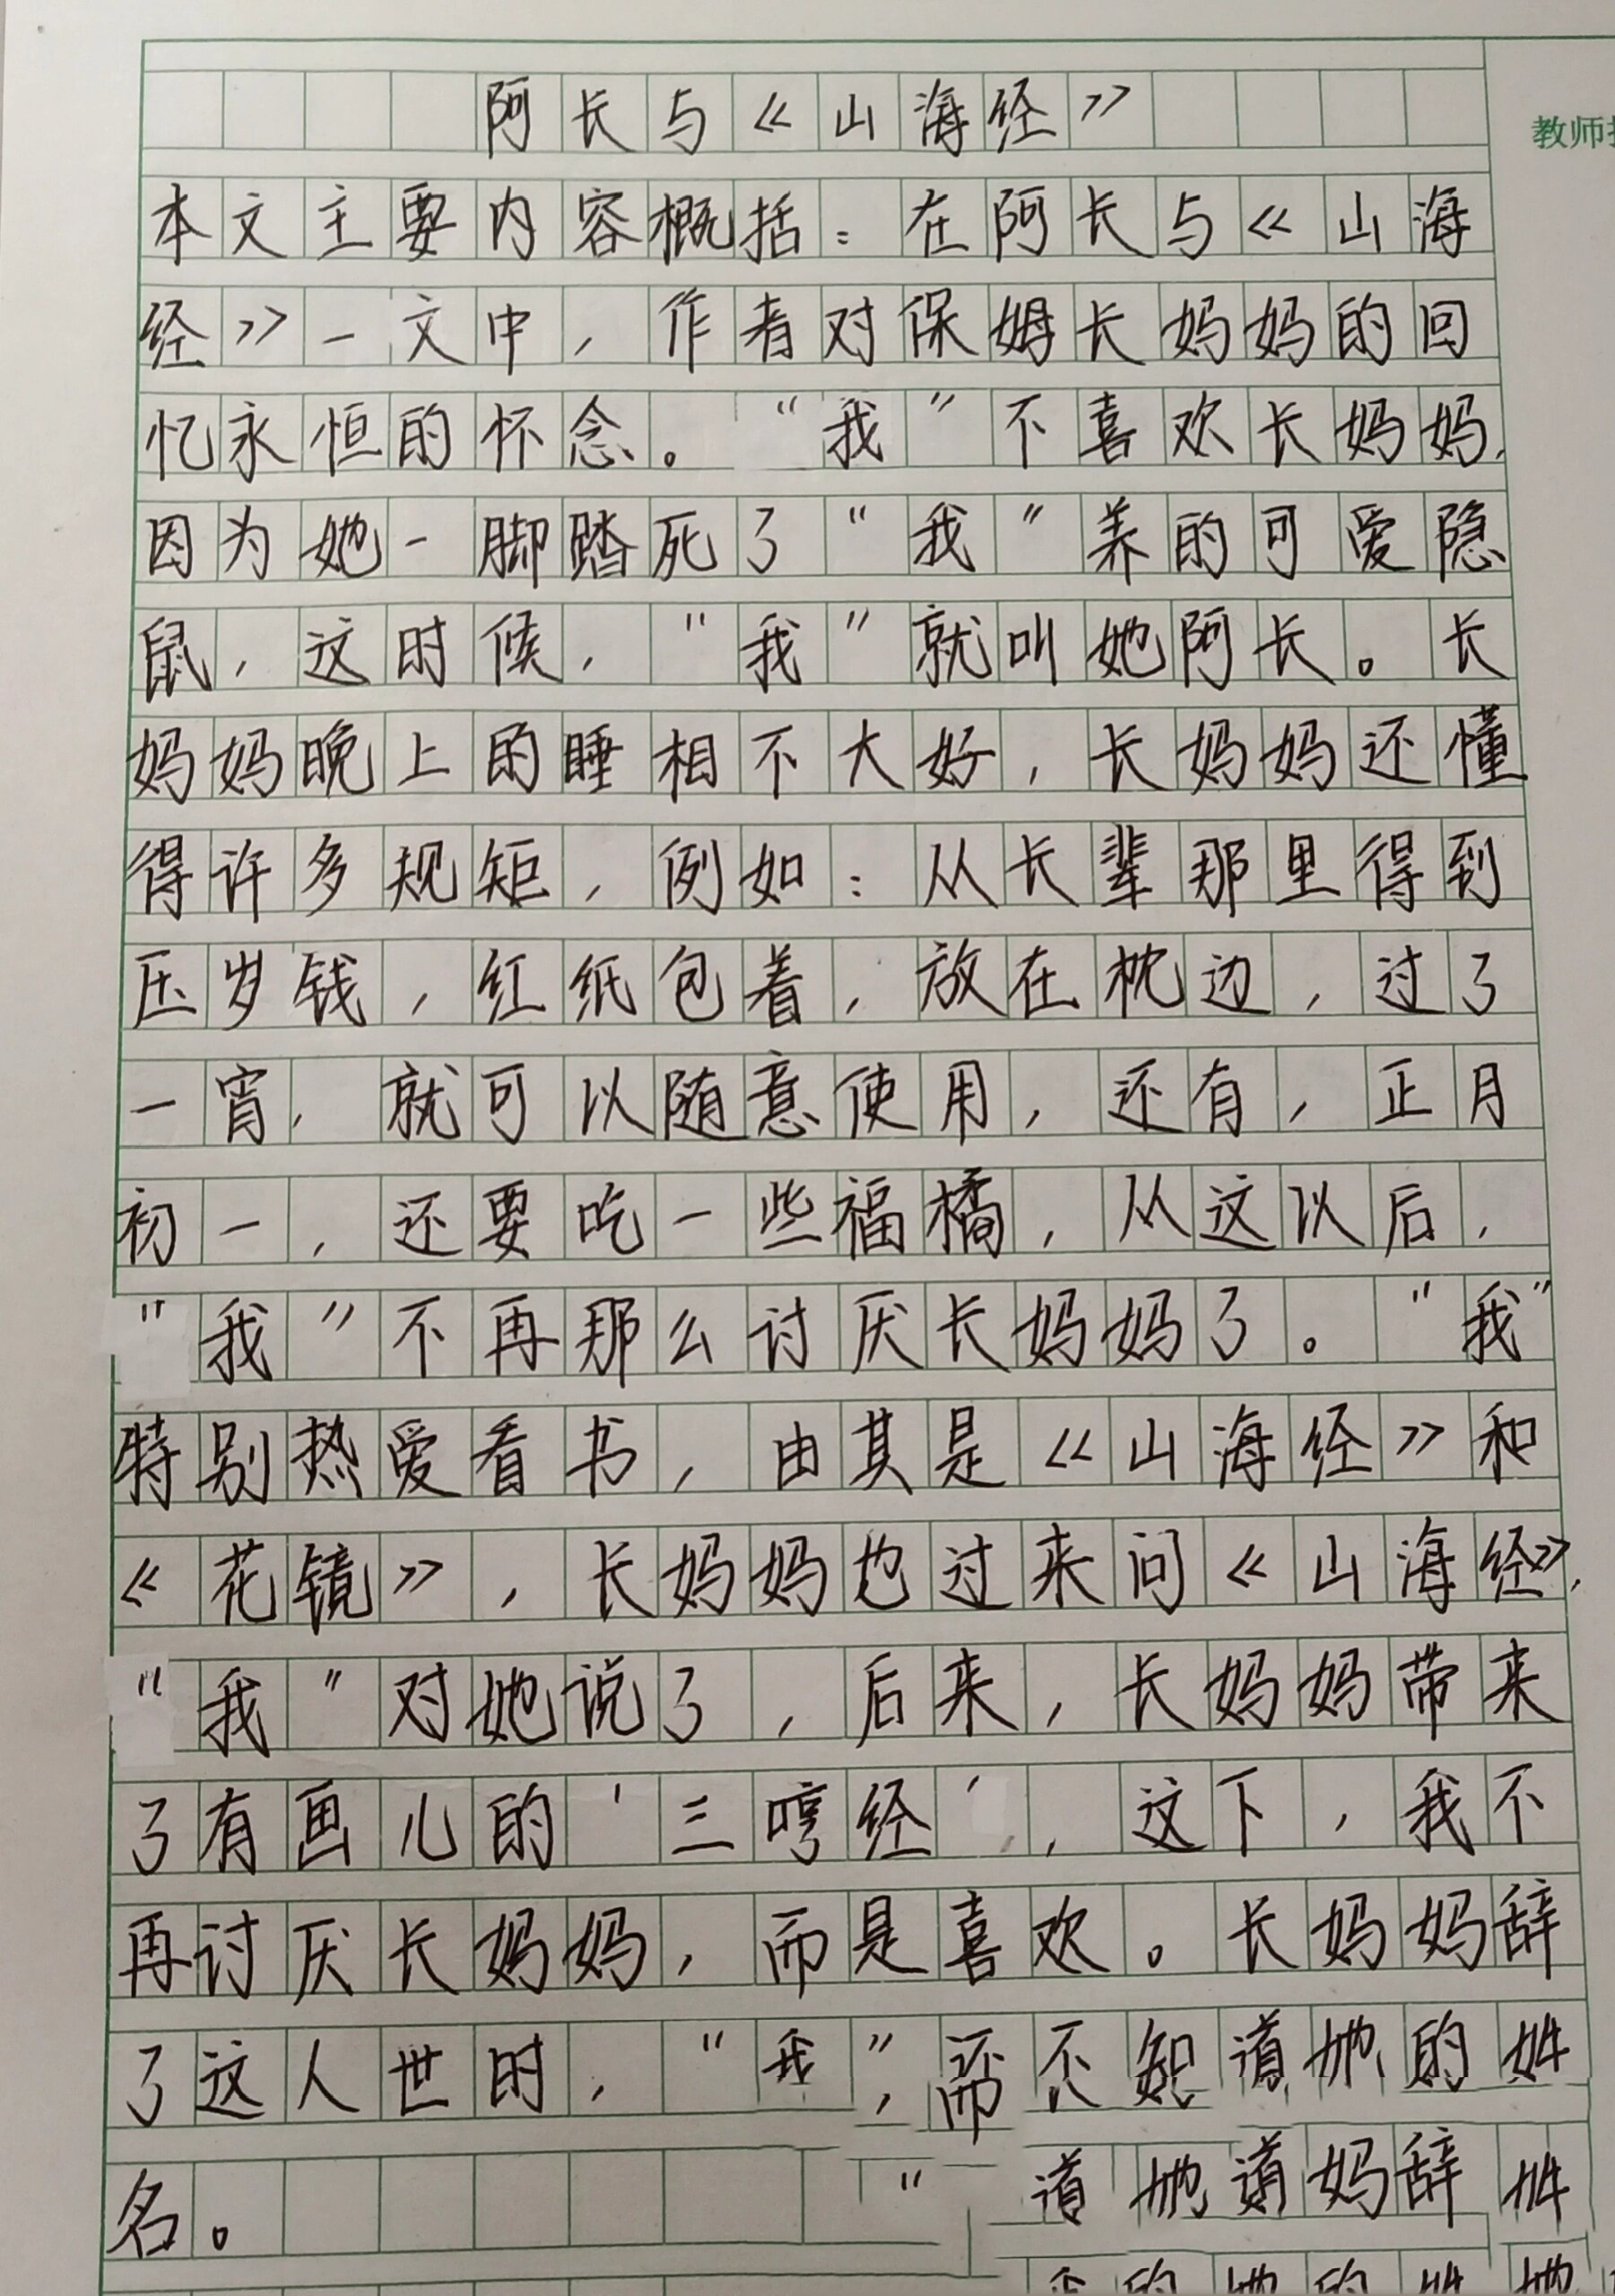 阿长与《山海经》
教师
本文主要内容概括：在阿长与《山海
经》一文中，作者对保姆长妈妈的回
忆永恒的怀念。“我”不喜欢长妈妈，
因为她一脚踏死了“我”养的可爱隐
鼠，这时候，“我”就叫她阿长。长
妈妈晚上的睡相不大好，长妈妈还懂
得许多规矩，例如：从长辈那里得到
压岁钱，红纸包着，放在枕边，过了
一宵，就可以随意使用，还有，正月
初一，还要吃一些福橘，从这以后，
“我”不再那么讨厌长妈妈了。“我”
特别热爱看书，由其是《山海经》和
《花镜》，长妈妈也过来问《山海经》，
“我”对她说了，后来，长妈妈带来
了有画儿的‘三哼经’，这下，我不
再讨厌长妈妈，而是喜欢。长妈妈辞
了这人世时，“我”，不知道她的姓
名。“道她道妈辞姓